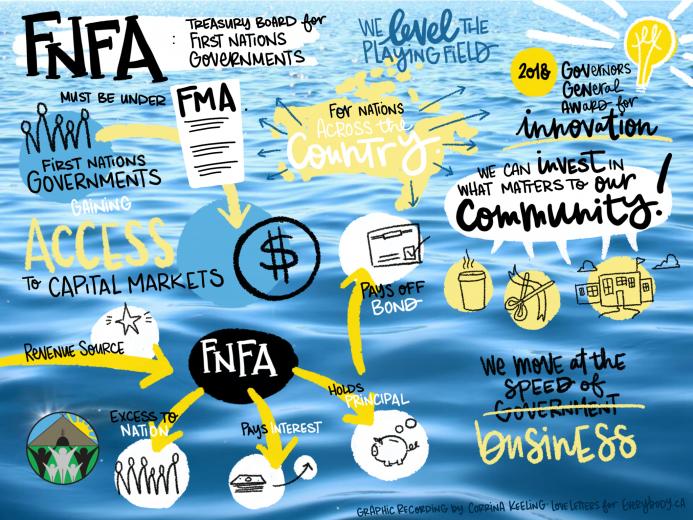 FNFA : TREASURY BOARD for
FIRST NATIONS
GOVERNMENTS
WE level THE
PLAYING FIELD
2018 GOVERNORS
GENERAL
AWARD for
innovation
MUST BE UNDER FMA
FIRST NATIONS
GOVERNMENTS
FOR NATIONS
ACROSS the
COUNTRY.
WE CAN invest IN
WHAT MATTERS TO our
Community!
GAINING
ACCESS
TO CAPITAL MARKETS
$
PAYS OFF
BOND
REVENUE SOURCE
FNFA
HOLDS
PRINCIPAL
EXCESS TO
NATION
PAYS INTEREST
WE MOVE at the
SPEED of
GOVERNMENT
businESS
GRAPHIC RECORDING by CORRINA KEELING · LOVE LETTERS for EVERYBODY.CA